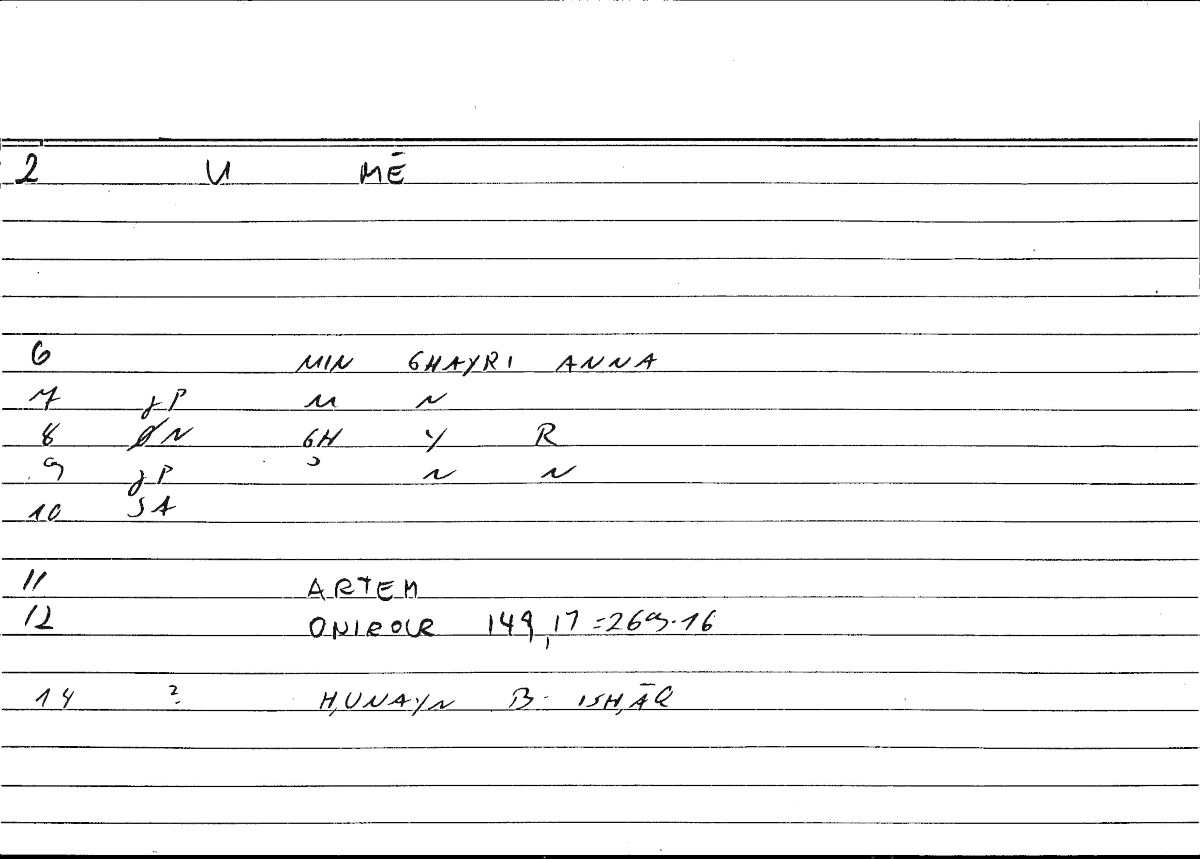 2 U MĒ
6 MIN GHAYRI ANNA
7 gP M N
8 ØN GH Y R
9 gP ʾ N N
10 SA
11 ARTEM
12 ONIROCR 149,17=269.16
14 ? H,UNAYN B. ISH,ĀQ